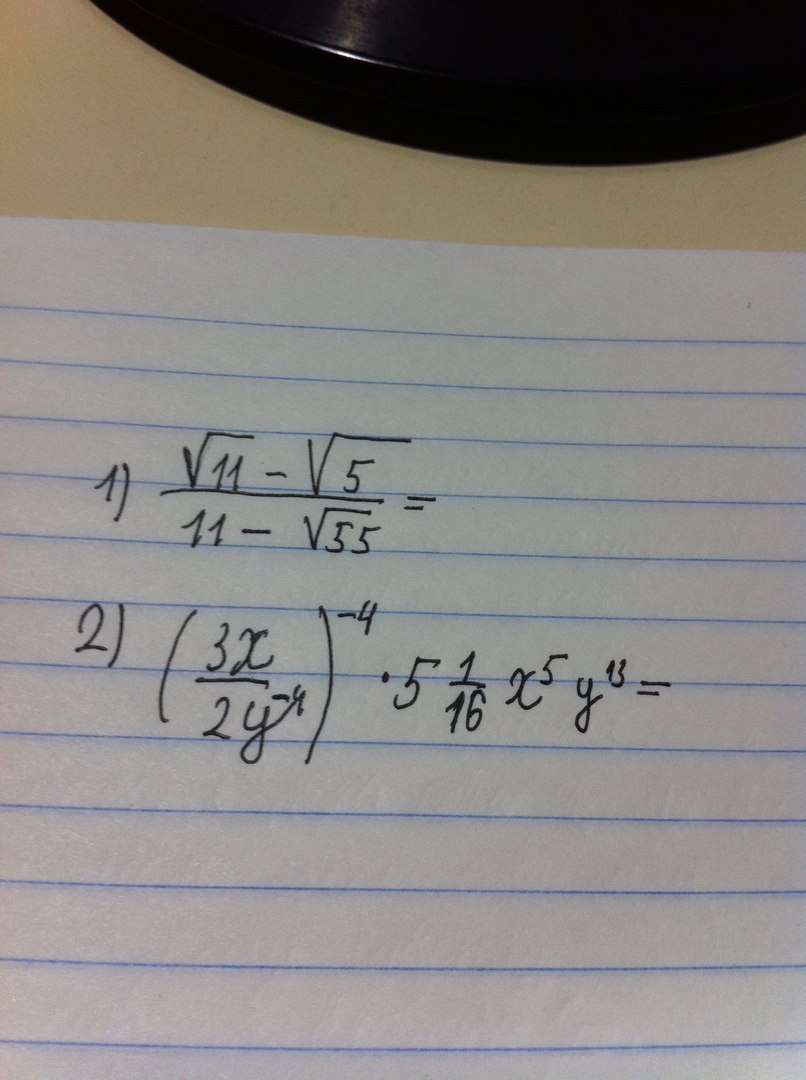 1) (√11 - √5) / (11 - √55) =
2) (3x / 2y⁻⁴)⁻⁴ · 5 1/16 x⁵ y¹³ =